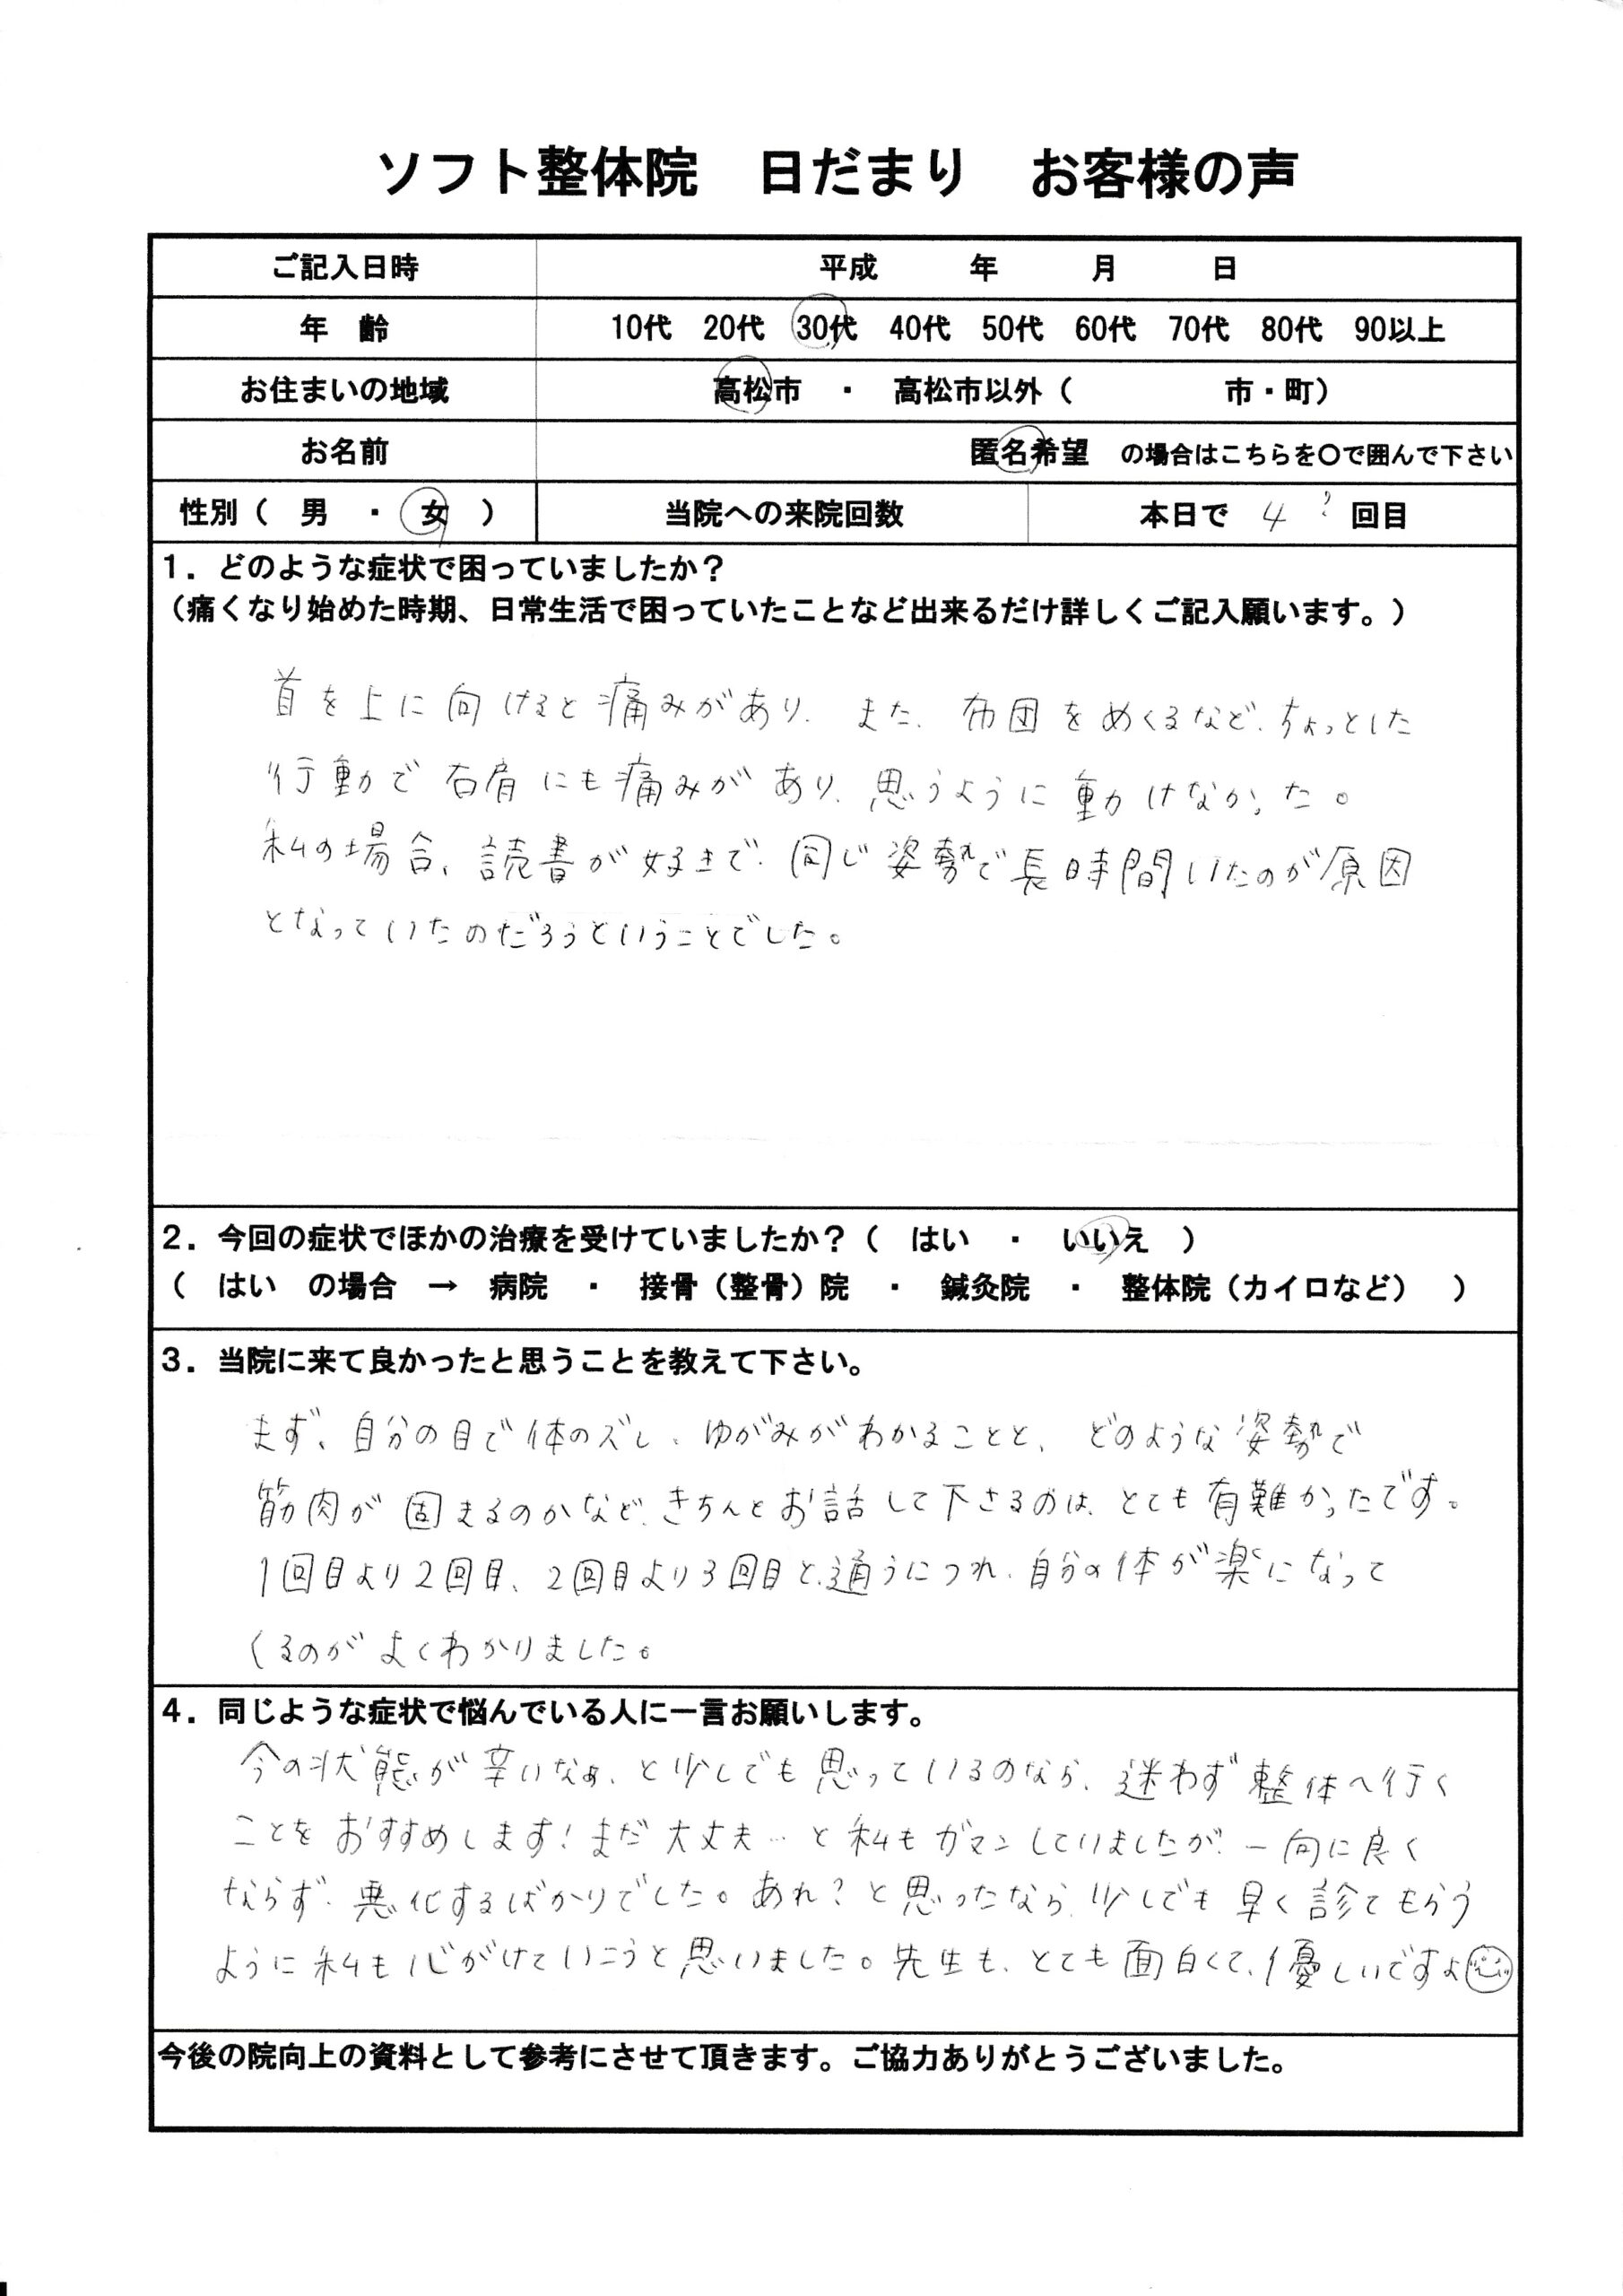 ソフト整体院　日だまり　お客様の声
ご記入日時　平成　　年　　月　　日
年　齢　10代　20代　30代　40代　50代　60代　70代　80代　90以上
お住まいの地域　高松市　・　高松市以外（　　　　　市・町）
お名前　匿名希望　の場合はこちらを〇で囲んで下さい
性別（　男　・　女　）　当院への来院回数　本日で　4？　回目
1．どのような症状で困っていましたか？
（痛くなり始めた時期、日常生活で困っていたことなど出来るだけ詳しくご記入願います。）
首を上に向けると痛みがあり、また、布団をめくるなど、ちょっとした
行動で右肩にも痛みがあり、思うように動けなかった。
私の場合、読書が好きで、同じ姿勢で長時間いたのが原因
となっていたのだろうということでした。
2．今回の症状でほかの治療を受けていましたか？（　はい　・　いいえ　）
（　はい　の場合　→　病院　・　接骨（整骨）院　・　鍼灸院　・　整体院（カイロなど）　）
3．当院に来て良かったと思うことを教えて下さい。
まず、自分の目で体のズレ、ゆがみがわかることと、どのような姿勢で
筋肉が固まるのかなど、きちんとお話して下さるのは、とても有難かったです。
1回目より2回目、2回目より3回目と、通うにつれ、自分の体が楽になって
くるのがよくわかりました。
4．同じような症状で悩んでいる人に一言お願いします。
今の状態が辛いなぁ、と少しでも思っているのなら、迷わず整体へ行く
ことをおすすめします！まだ大丈夫…と私もガマンしていましたが、一向に良く
ならず、悪化するばかりでした。あれ？と思ったなら、少しでも早く診てもらう
ように私も心がけていこうと思いました。先生も、とても面白くて、優しいですよ
今後の院向上の資料として参考にさせて頂きます。ご協力ありがとうございました。